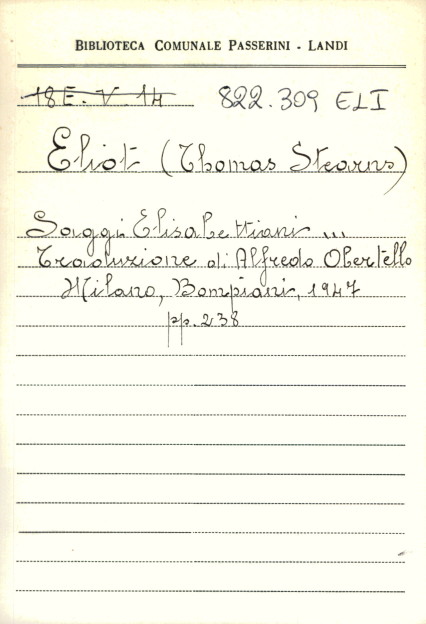 BIBLIOTECA COMUNALE PASSERINI - LANDI
18 E. V. 14 822.309 ELI
Eliot (Thomas Stearns)
Saggi Elisabettiani ...
Traduzione di Alfredo Obertello
Milano, Bompiani, 1947
pp. 238